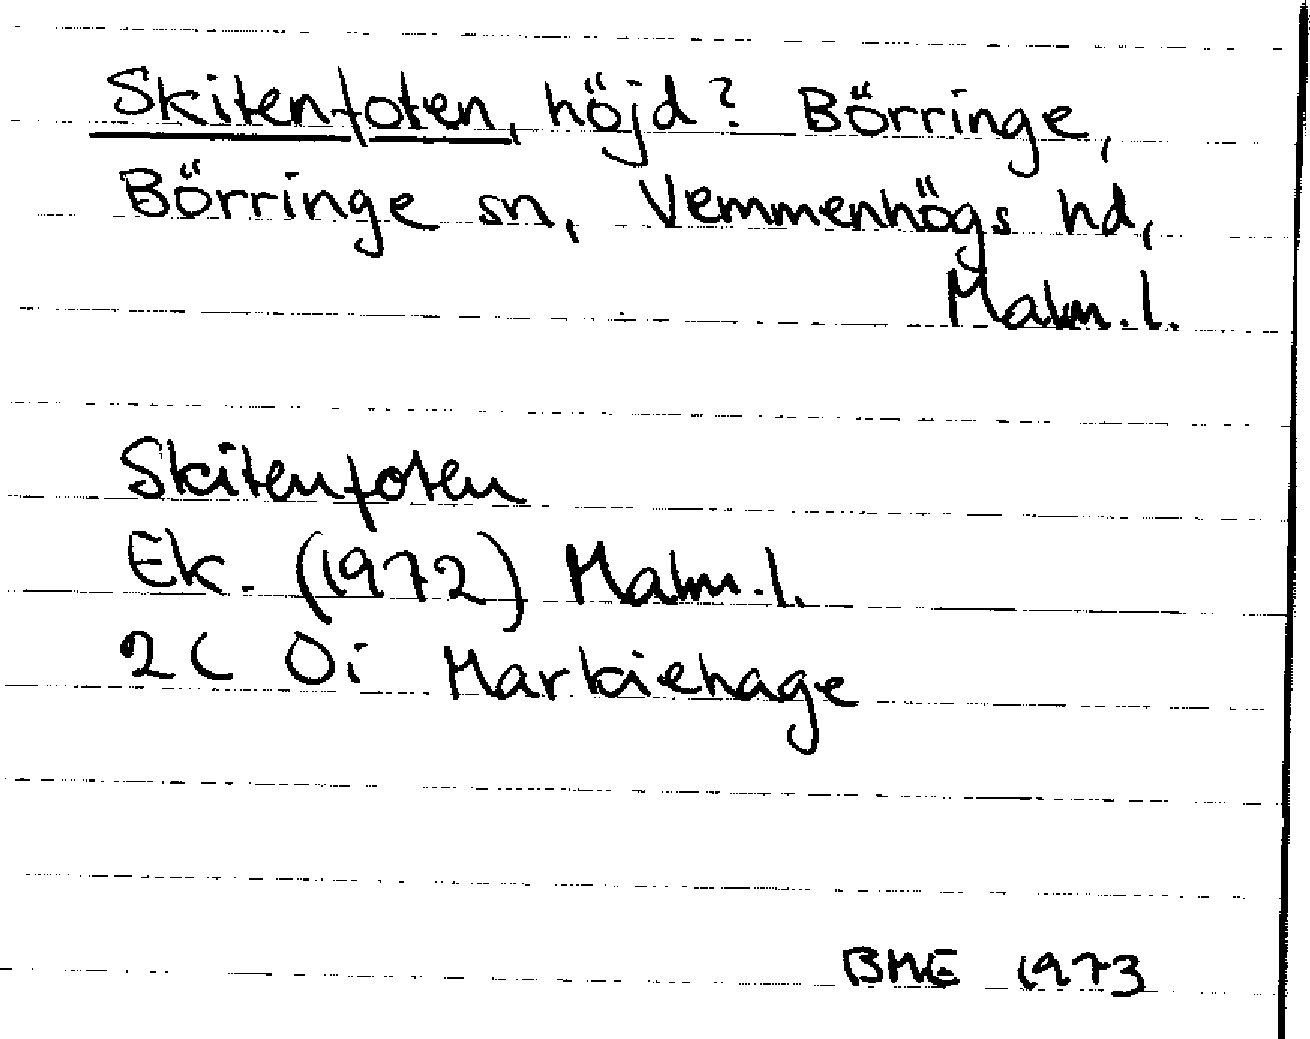 Skitenfoten, höjd? Börringe,
Börringe sn, Vemmenhögs hd,
Malm.l.
Skitenfoten
Ek. (1972) Malm.l.
2C 0i Markiehage
BME 1973